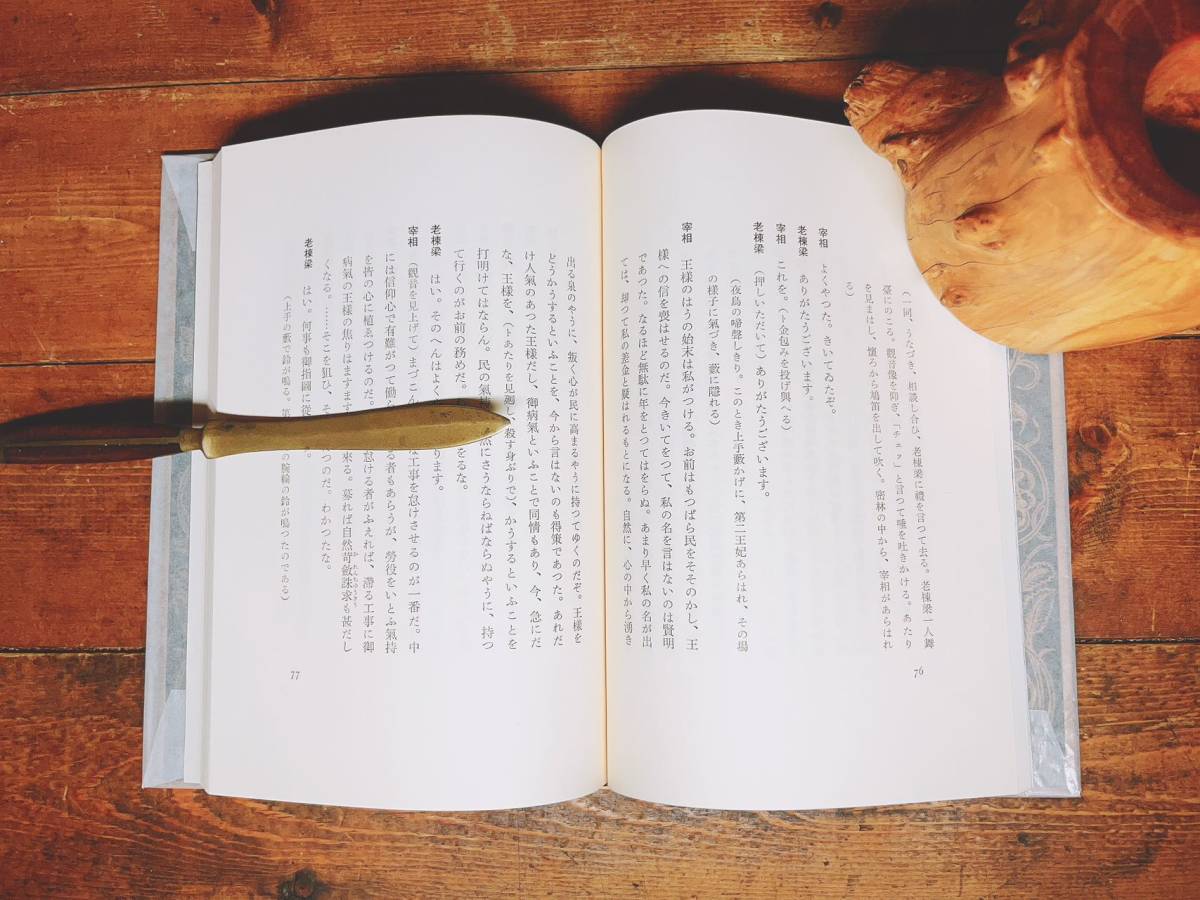 (一同、うなづき、相談し合ひ、老棟梁に禮を言つて去る。老棟梁一人舞
臺にのこる。觀音像を仰ぎ、「チェッ」と言つて唾を吐きかける。あたり
を見まはし、懷ろから鳩笛を出して吹く。密林の中から、宰相があらはれ
る)
宰相 よくやつた。きいてゐたぞ。
老棟梁 ありがたうございます。
宰相 これを。(ト金包みを投げ與へる)
老棟梁 (押しいただいて)ありがたうございます。
(夜鳥の啼聲しきり。このとき上手藪かげに、第二王妃あらはれ、その場
の樣子に氣づき、藪に隱れる)
宰相 王樣のはうの始末は私がつける。お前はもつぱら民をそそのかし、王
樣への信を喪はせるのだ。今きいてをつて、私の名を言はないのは賢明
であつた。なるほど無駄に年をとつてはをらぬ。あまり早く私の名が出
ては、却つて私の差金と疑はれるもとになる。自然に、心の中から湧き
76
出る泉のやうに、叛く心が民に高まるやうに持つてゆくのだぞ。王樣を
どうかうするといふことを、今から言はないのも得策であつた。あれだ
け人氣のあつた王樣だし、御病氣といふことで同情もあり、今、急にだ
な、王樣を、(トあたりを見廻し、殺す身ぶりで)、かうするといふことを
打明けてはならん。民の氣 然にさうならねばならぬやうに、持つ
て行くのがお前の務めだ。 をるな。
老棟梁 はい。そのへんはよく ります。
宰相 (觀音を見上げて)まづこん な工事を怠けさせるのが一番だ。中
には信仰心で有難がつて働 る者もあらうが、勞役をいとふ氣持
を皆の心に植ゑつけるのだ。 怠ける者がふえれば、滯る工事に御
病氣の王樣の焦りはますます 來る。募れば自然苛斂誅求も甚だし
かれんちゆうきう
くなる。……そこを狙ひ、そ つのだ。わかつたな。
老棟梁 はい。何事も御指圖に從
(上手の藪で鈴が鳴る。第 の腕輪の鈴が鳴つたのである)
77